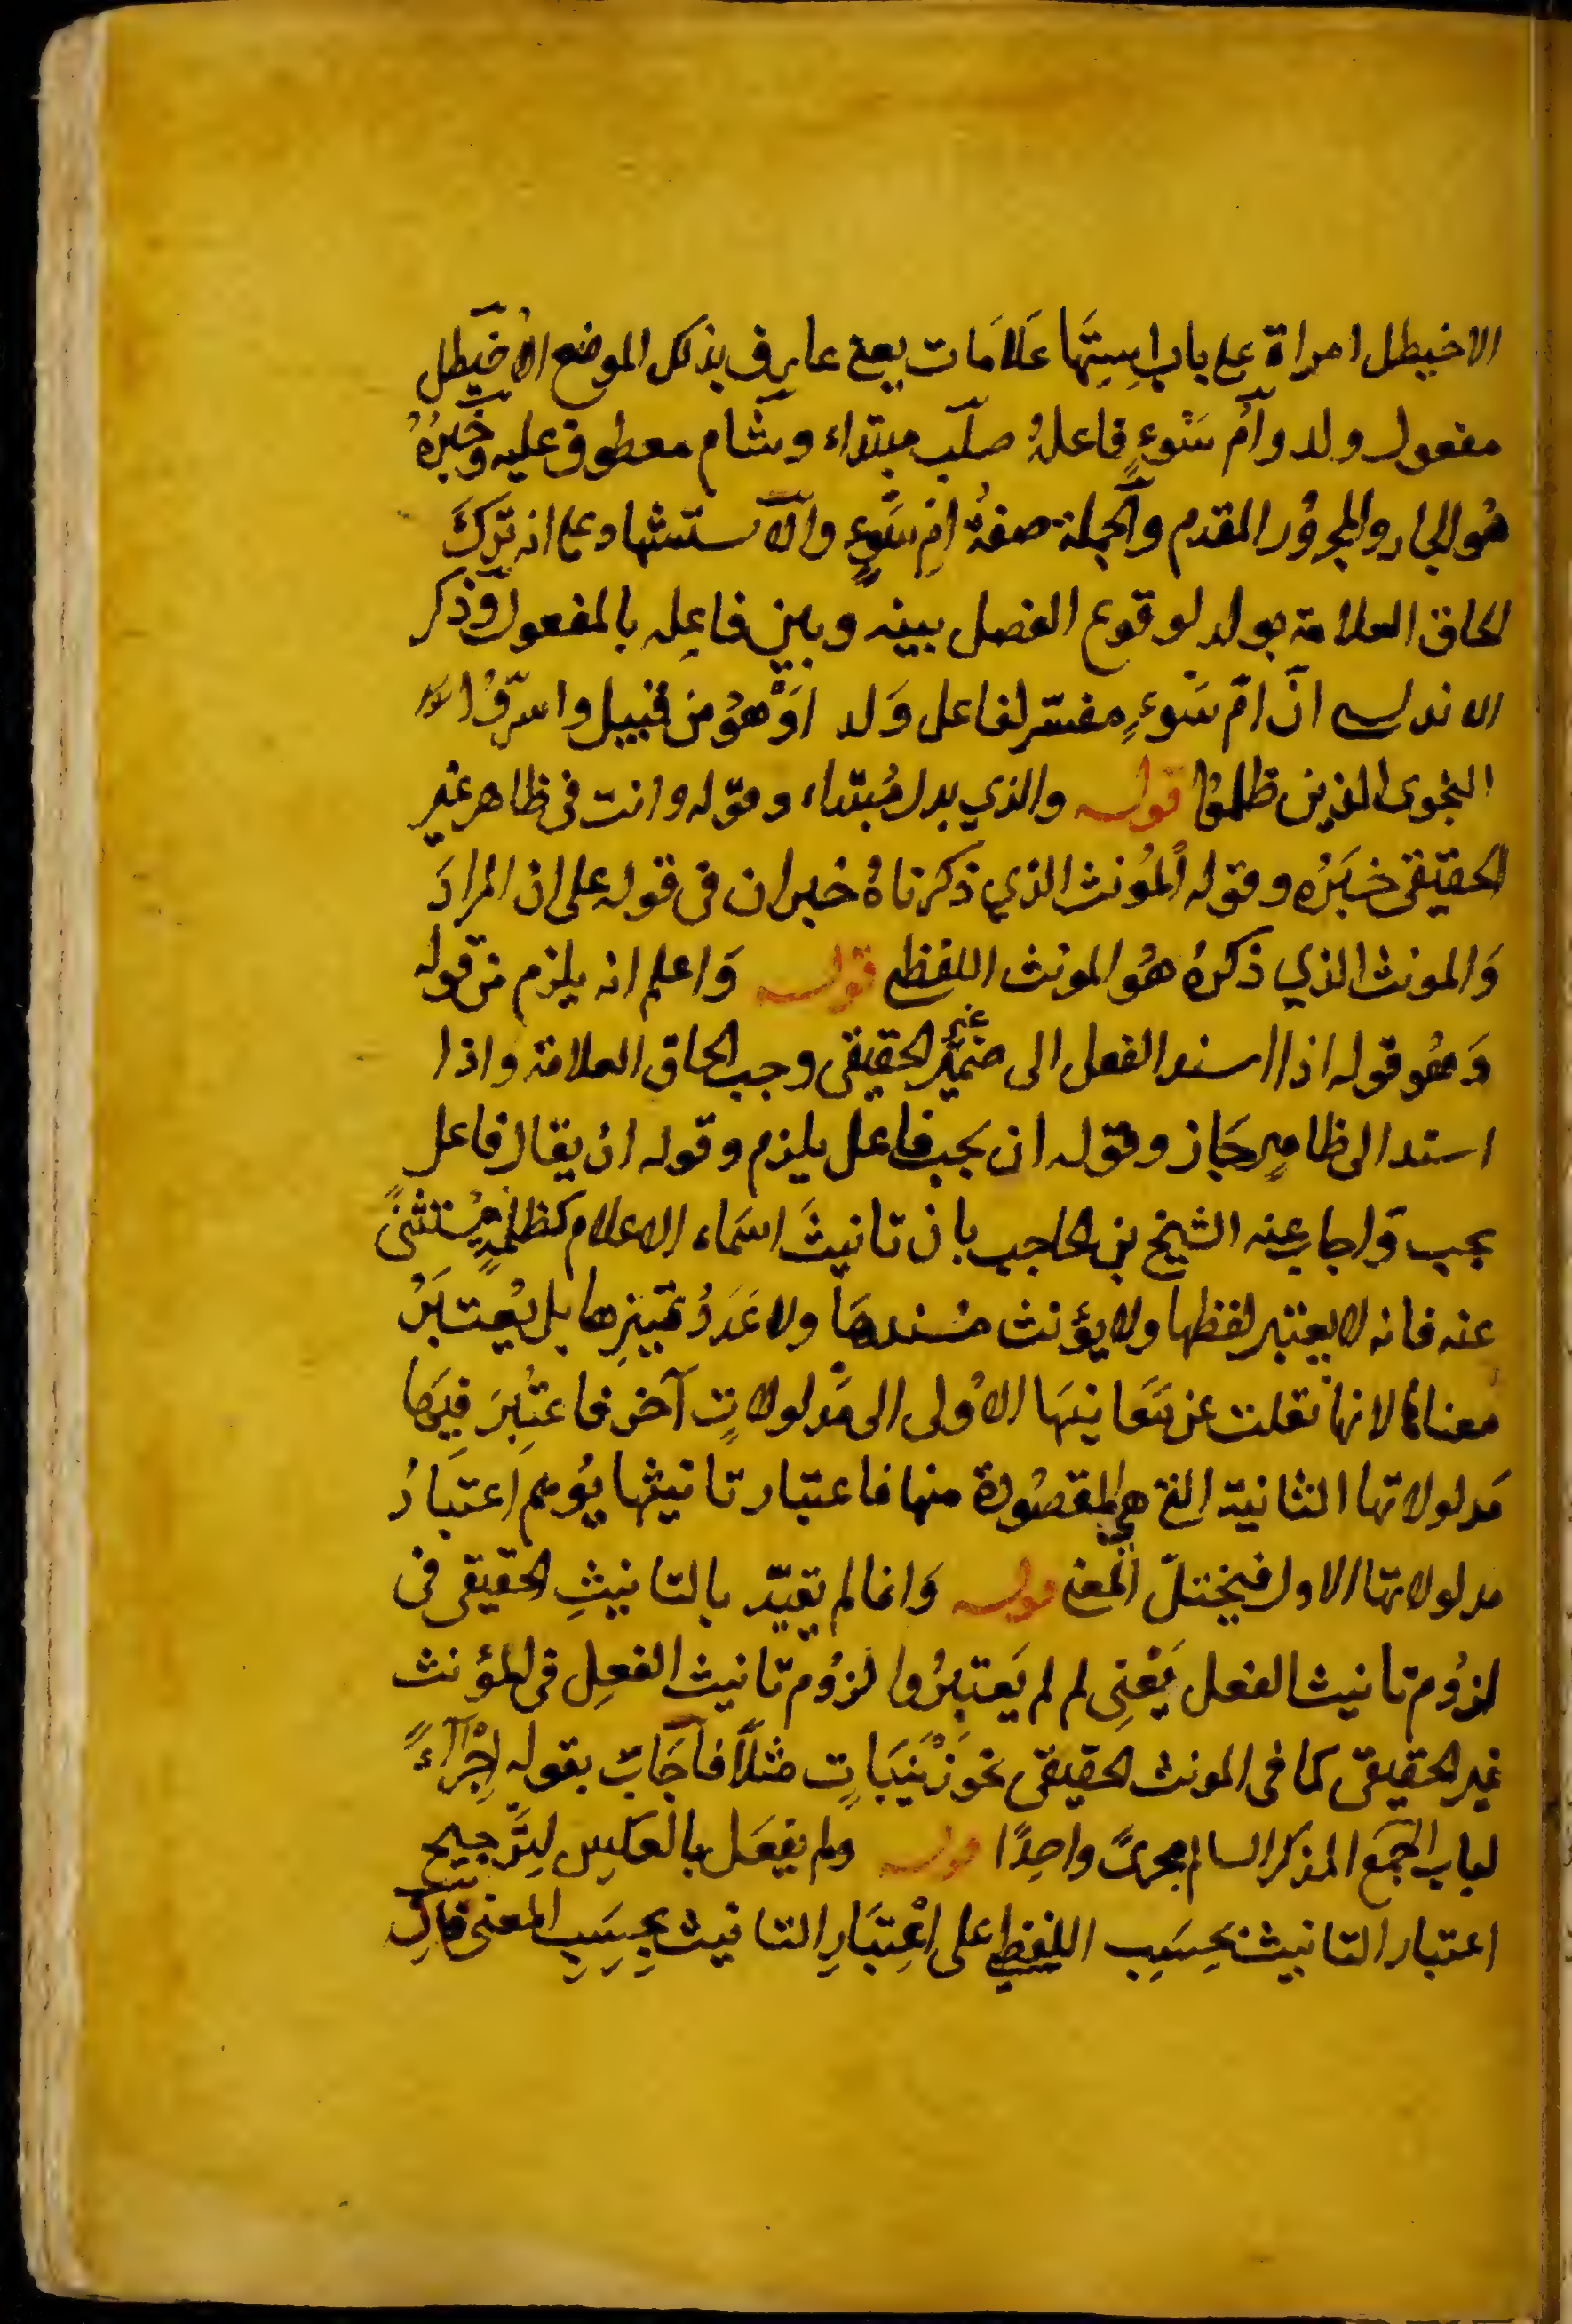 الاخيطل امراة على باب اسِتِهَا عَلاَمَات يعني عارف بذلك الموضع الاُخيطل
مفعول ولد وآُم سَوءٍ فاعلهُ صلَب مبتداء وشام معطوف عليه وخَبَرُهُ
هُو الجار والمجرُور المقدم والجملة صفةُ ام سَوءٍ والاستشهاد على انه تَرَكَ
الحاق العلامة بولد لوقوع الفصل بينه وبين فاعِله بالمفعول وذكر
الاندلسى انّ امّ سَوءٍ مفسّر لفاعل وَلد اوَهُوَ من قبيل واسرّوُا
النجوى الذين ظلموُا قوله والذي يدل مُبتداء وقوله وانت فى ظاهر غير
الحقيقى خبَرُه وقوله المُونث الذي ذكرناهُ خبر ان فى قوله على ان المرادَ
وَالمونث الذي ذكرهُ هُو المونث اللفظى قوله وَاعلم انه يلزم من قوله
وَهُو قوله اذا اسند الفعل الى ضمَير غير الحقيقى وجب الحاق العلامة واذا
اسند الى ظاهرٍ جَاز وقوله ان يجب فاعل يلزم وقوله ان يقال فاعل
يجب وَاجاب عنه الشيخ بن الحاجب بان تانيثَ اسَماء الاعلام كظلمةٍ مُستثنىً
عنه فانه لا يعتبر لفظها ولا يؤنث مُسندهَا ولا عَدَدُ تمييزِها بل يُعتبَرُ
معناهَا لانها نقلت عن مَعَانيهَا الاوُلى الى مَدلولاتٍ آخر فاعتُبِرَ فيهَا
مَدلولاتها الثانية التى هي المقصُودة منها فاعتبار تانيثها يُوهِم اعتبَارُ
مدلولاتها الاول فيختلّ المعنى قوله وَانما لم يقيّد بالتانيثِ الحقيقى فى
لزُوم تانيث الفعل يَعْنِى لم لم يَعتبرُوا لزُوم تانيث الفعِل فى المؤنث
غير الحقيقى كما فى المونث الحقيقى نحوَ زَيْنَبَاتٍ مثلاً فاَجَابَ بقوله اِجْرَآءً
لباب الجَمع المذكر السالم مجرىً واحِدًا قوله ولم يفعَل بالعكسِ لِتَرجِيح
اعتبار التانيث بحسَبِ اللفظِ على اِعْتِبَارِ التانيث بِحِسَبِ المعنى